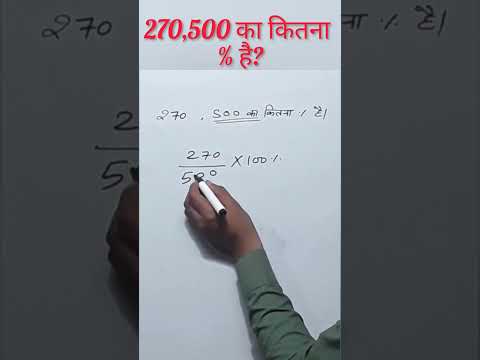 270,500 का कितना
% है?
270 , 500 का कितना % है।
270
500 × 100%